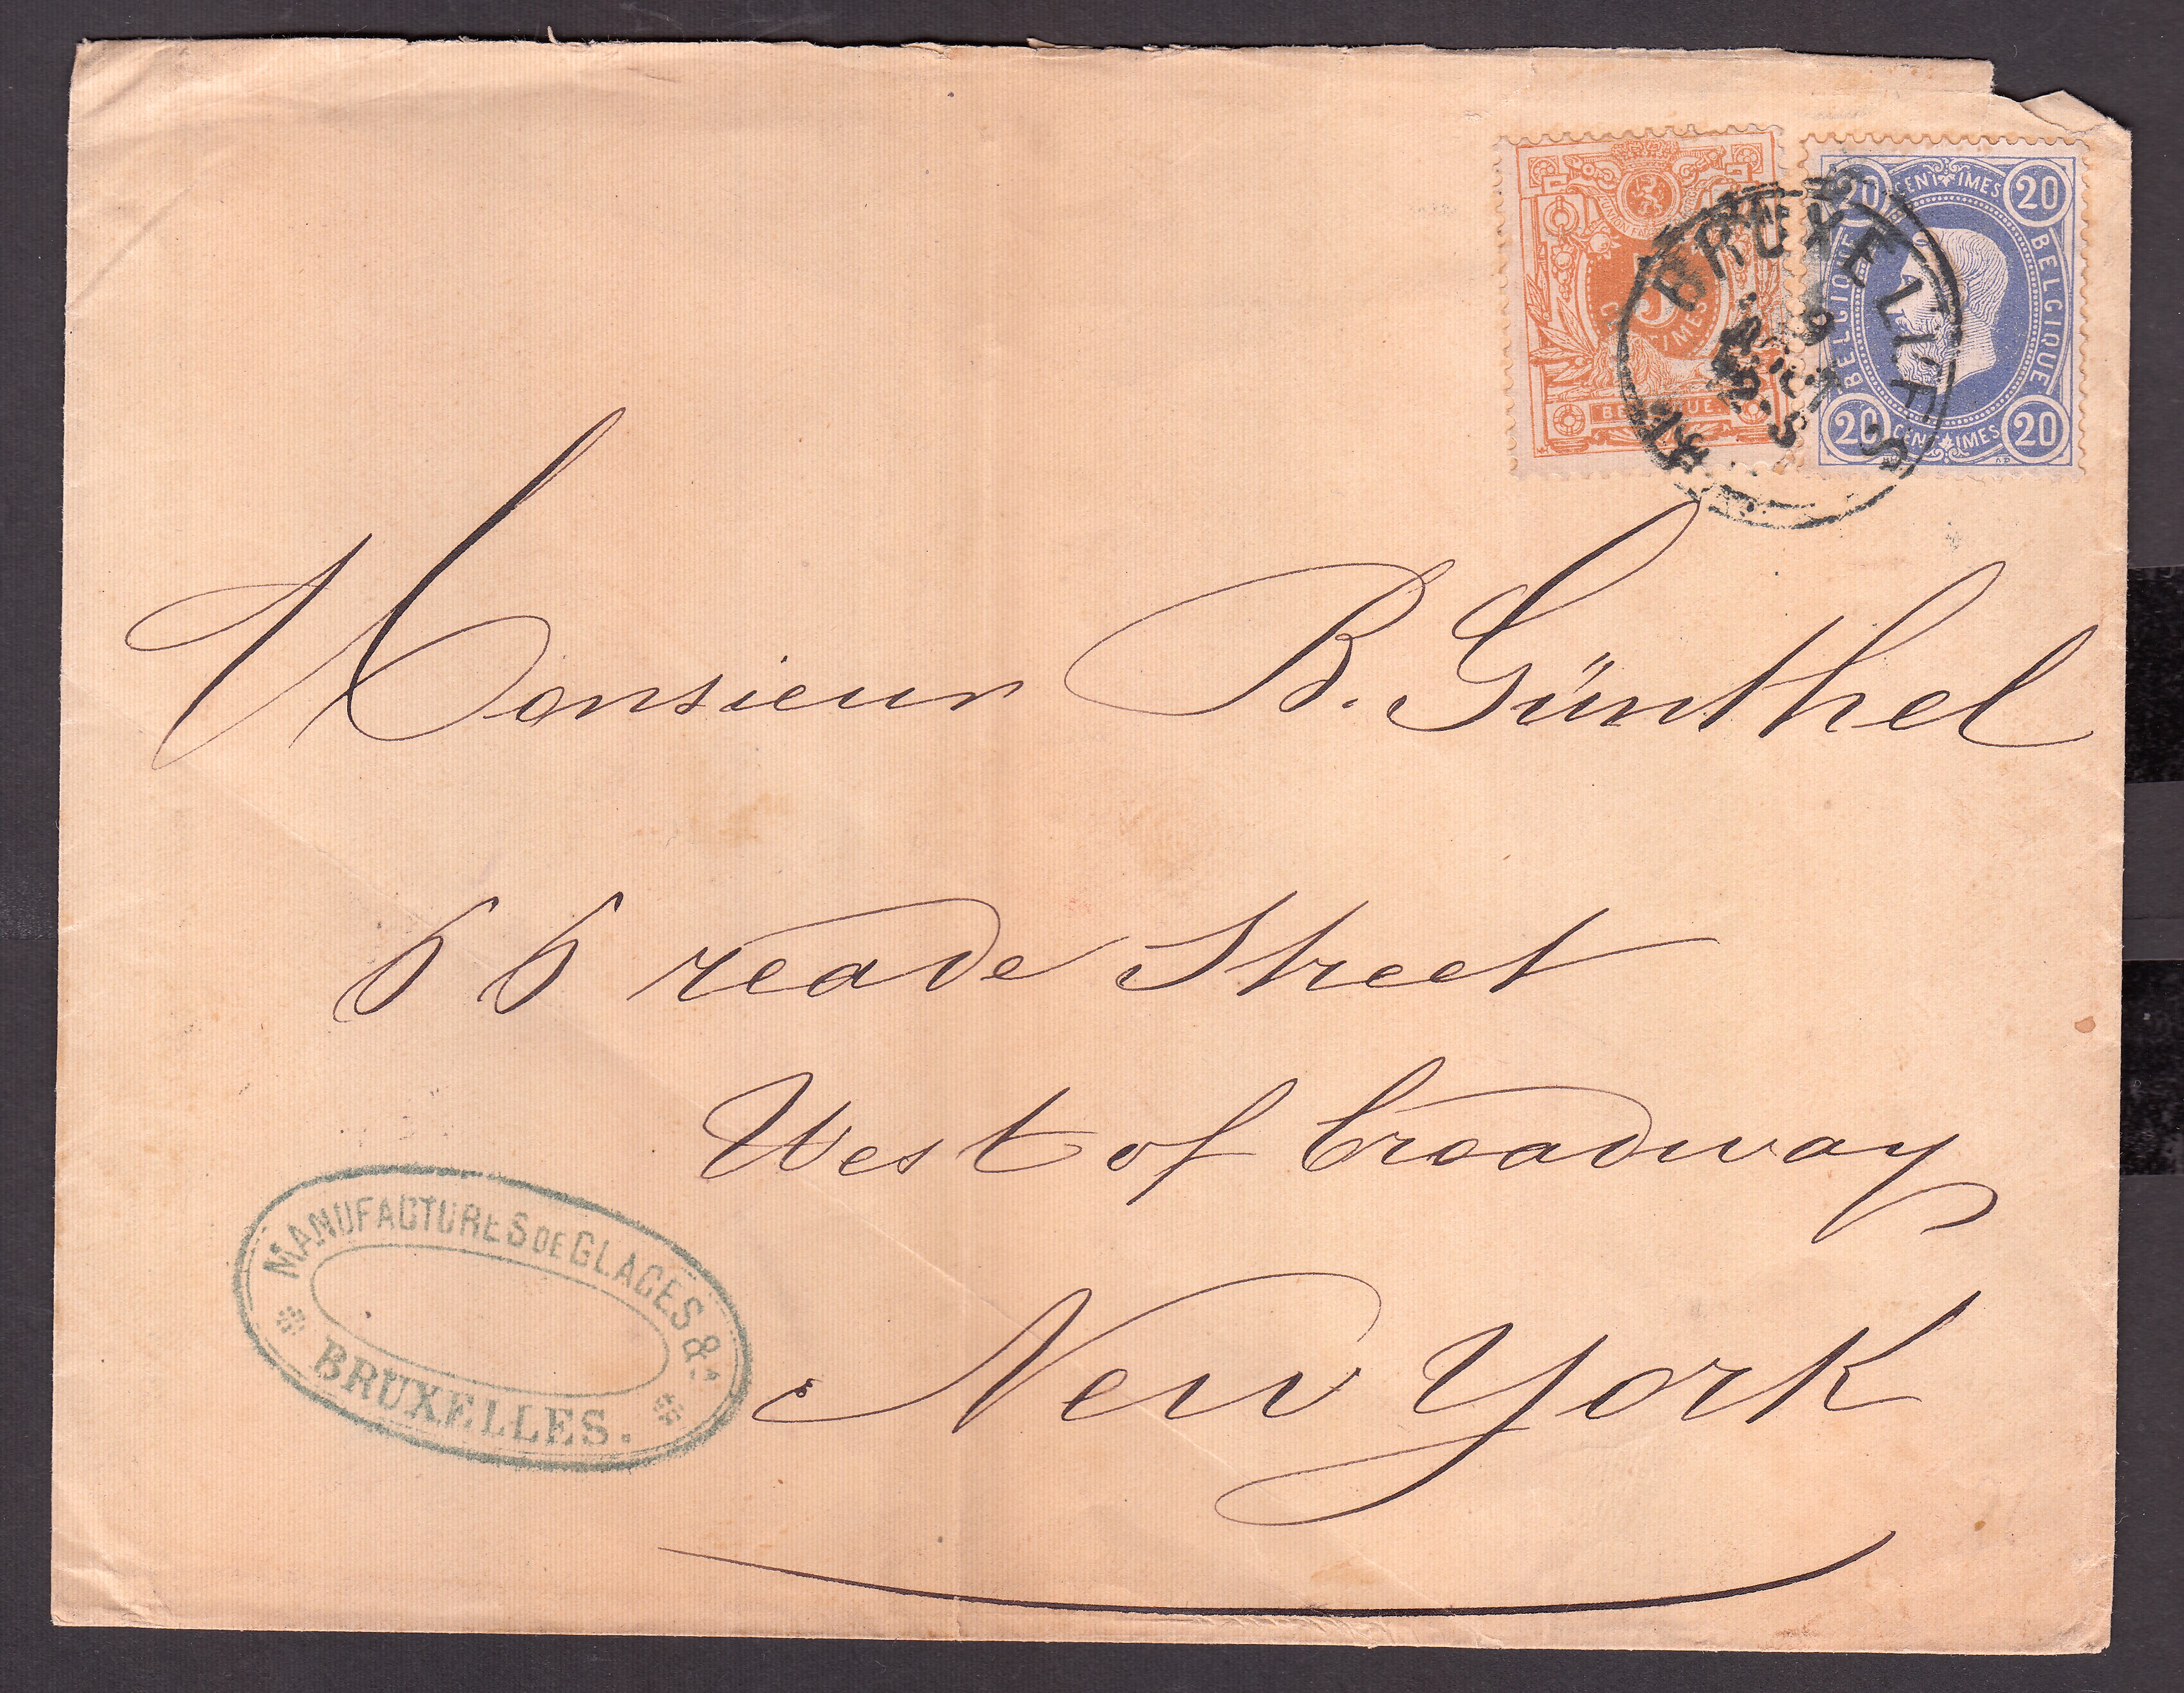 5
BELGIQUE
20 CENTIMES 20
BELGIQUE BELGIQUE
20 CENTIMES 20
BRUXELLES
Monsieur B. Günthel
66 reade Street
West of broadway
New York
MANUFACTURES DE GLACES &
BRUXELLES.